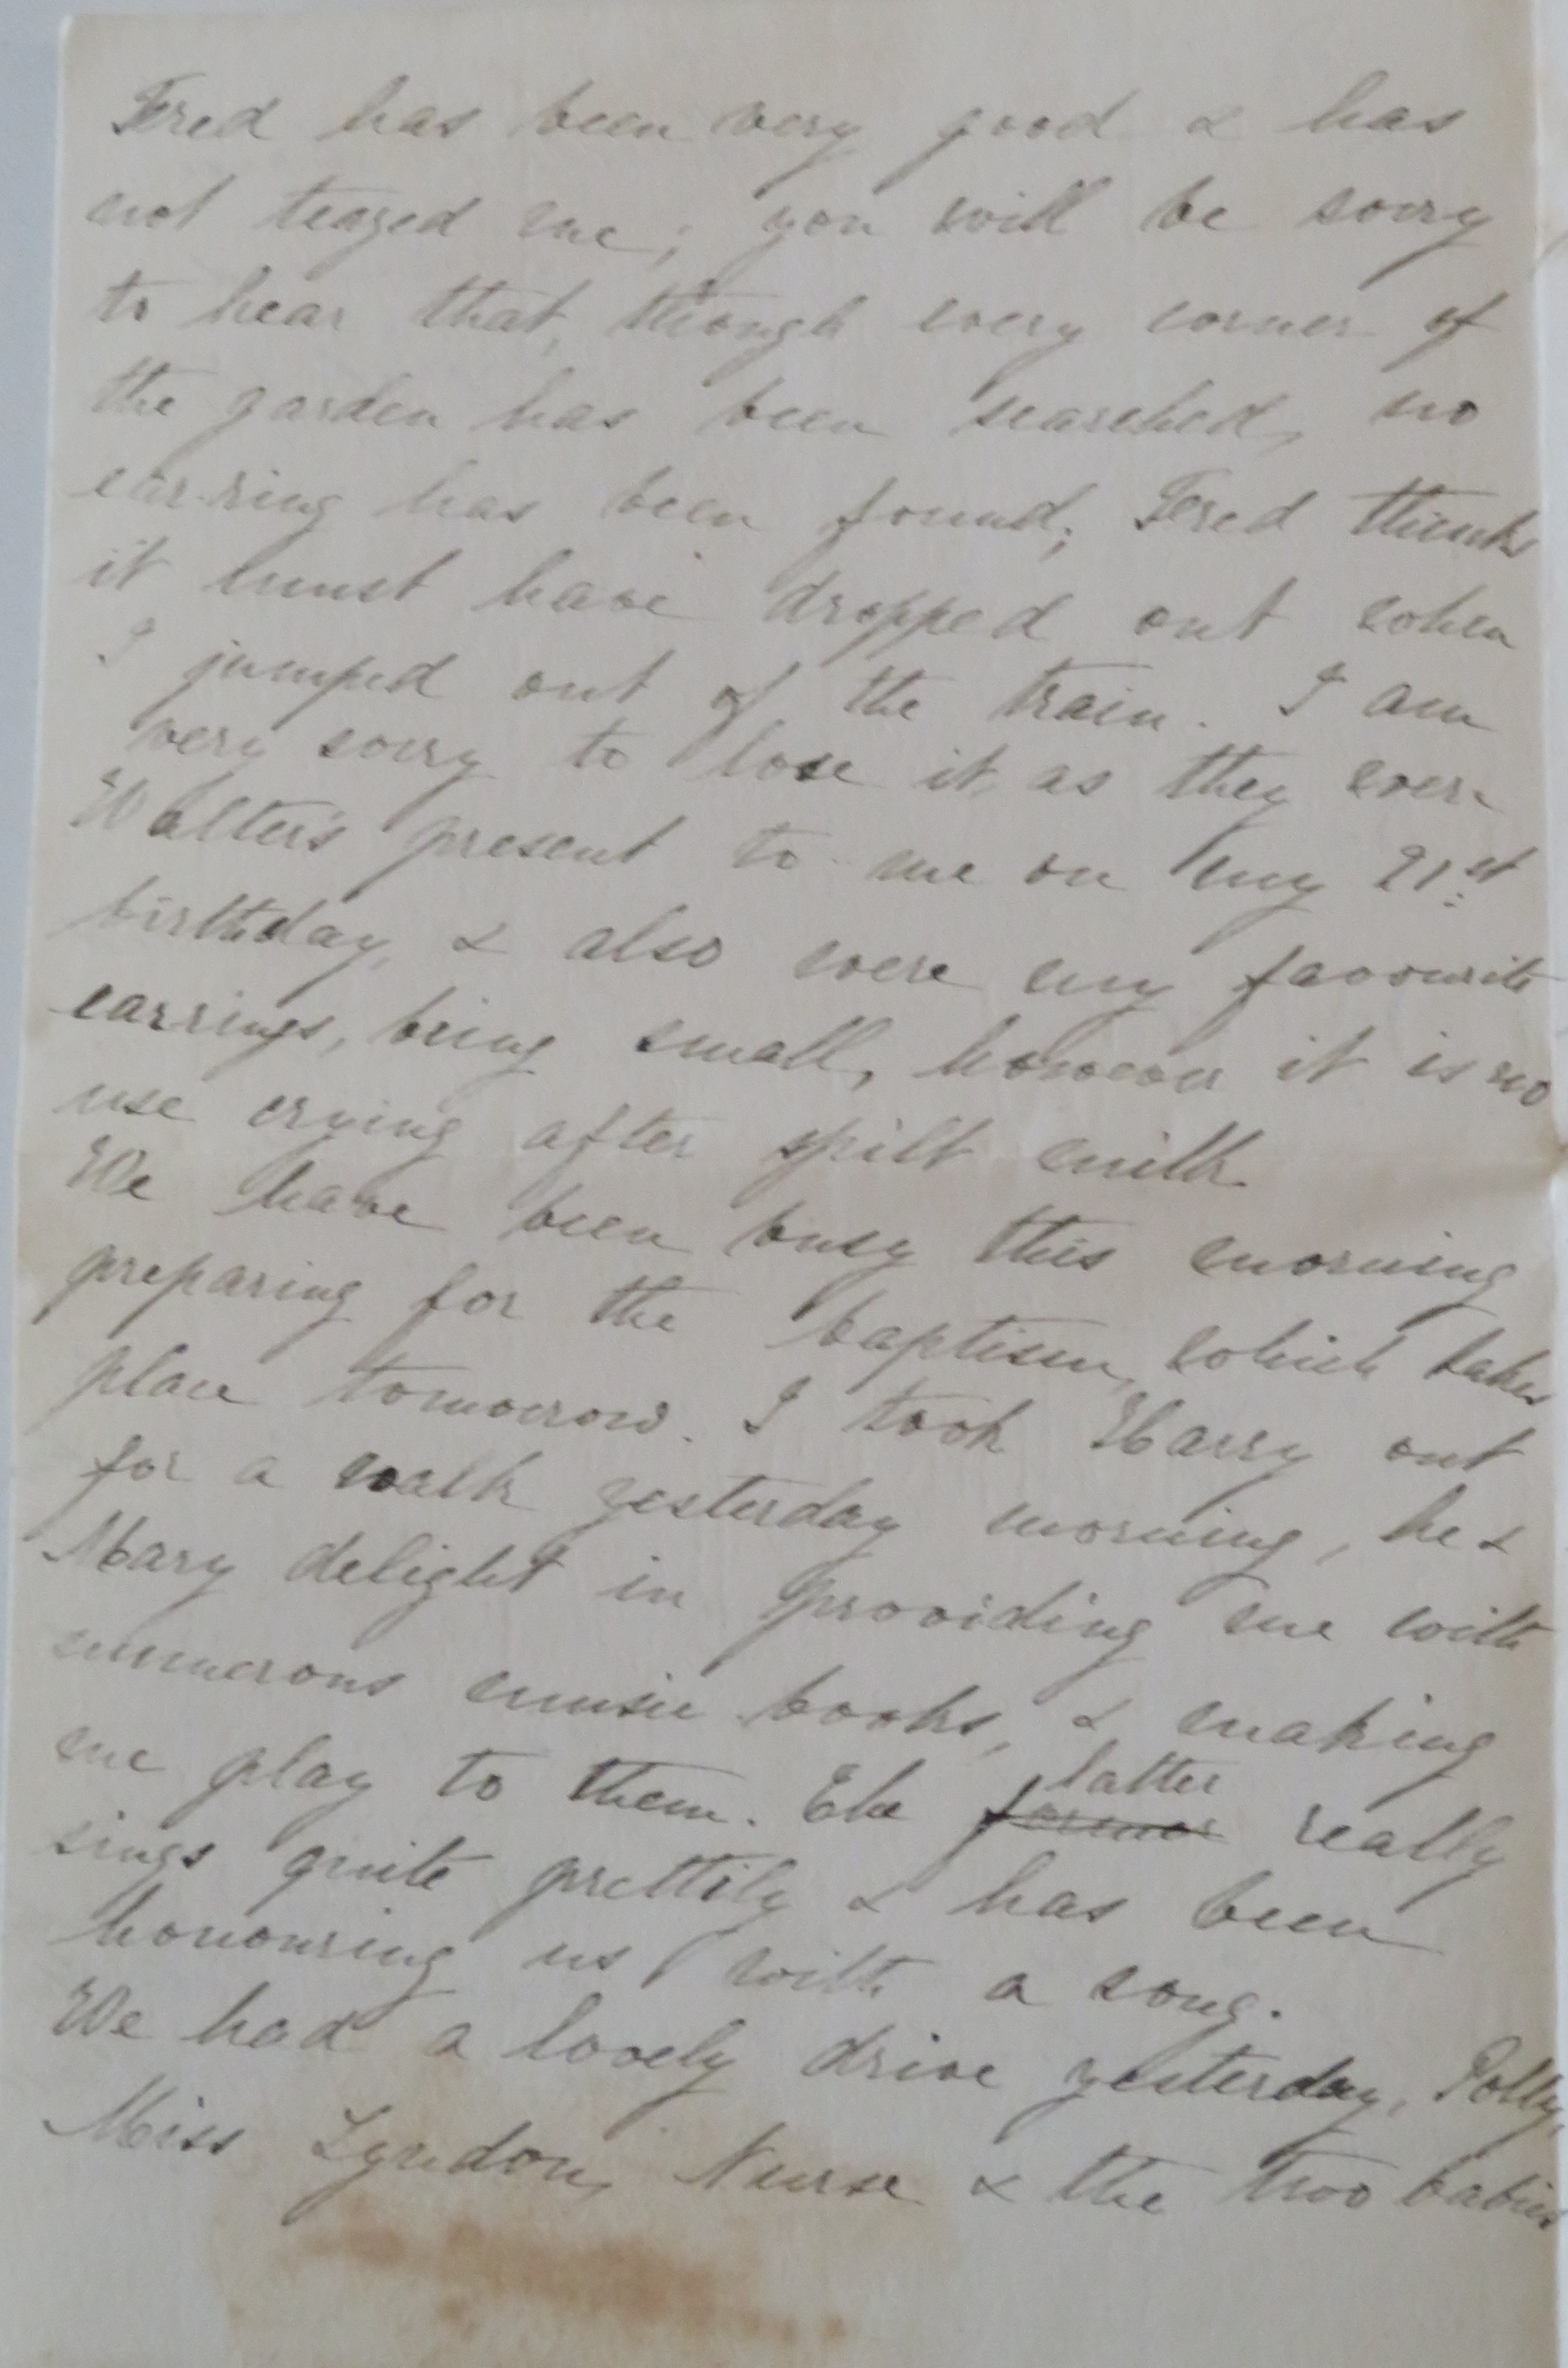 Fred has been very good & has
not teazed me; you will be sorry
to hear that, though every corner of
the garden has been searched, no
ear-ring has been found; Fred thinks
it must have dropped out when
I jumped out of the train. I am
very sorry to lose it, as they were
Walter's present to me on my 21st
birthday, & also were my favourite
earrings, being small, however it is no
use crying after spilt milk.
We have been busy this morning
preparing for the baptism, which takes
place tomorrow. I took Harry out
for a walk yesterday morning, he &
Mary delight in providing me with
numerous music books, & making
me play to them. The former latter really
sings quite prettily & has been
honouring us with a song.
We had a lovely drive yesterday, Polly,
Miss Lyndon, Nurse & the two babies